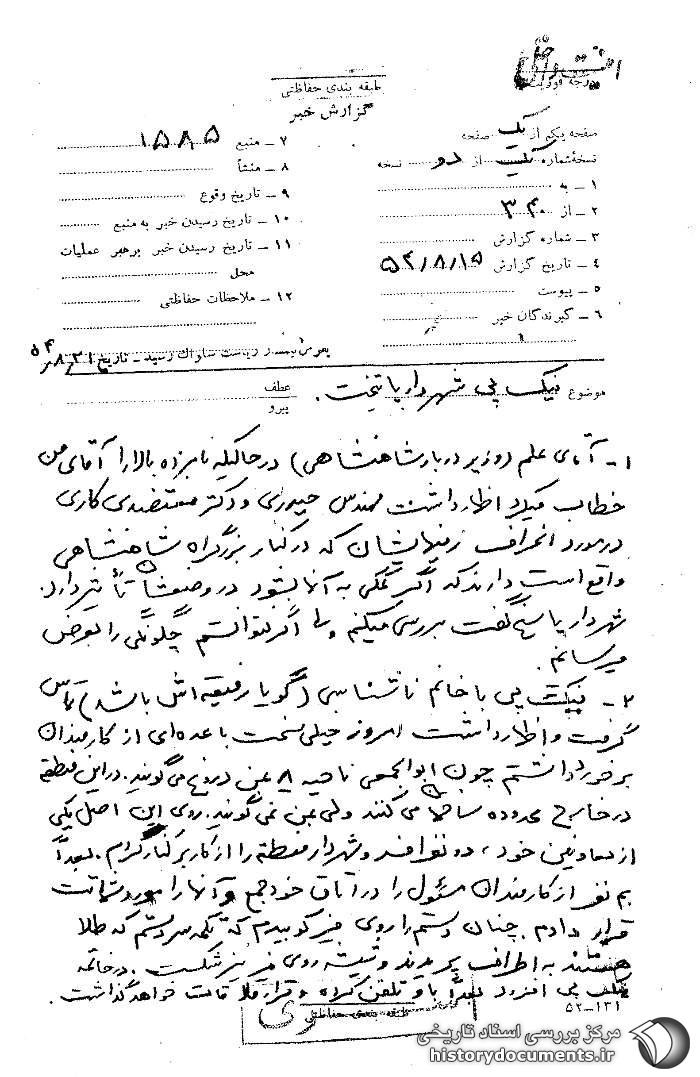 طبقه بندی حفاظتی
گزارش خبر
درجه فوریت
صفحه یکم از یک صفحه
نسخه شماره یک از دو نسخه
۱ - به
۲ - از ۳۴۰
۳ - شماره گزارش
۴ - تاریخ گزارش ۵۴/۸/۱۵
۵ - پیوست
۶ - گیرندگان خبر
۷ - منبع ۱۵۸۵
۸ - منشأ
۹ - تاریخ وقوع
۱۰ - تاریخ رسیدن خبر به منبع
۱۱ - تاریخ رسیدن خبر برهبر عملیات
محل
۱۲ - ملاحظات حفاظتی
ریاست ساواک رسید - تاریخ
موضوع نیک پی شهردار پایتخت .
عطف
پیرو
۱- آقای علم (وزیر دربار شاهنشاهی) در حالیکه نامبرده بالا را آقای من
خطاب میکرد اظهار داشت مهندس حیدری و دکتر معتضدی کاری
در مورد انحراف زمینهایشان که در کنار بزرگراه شاهنشاهی
واقع است دارند که اگر کمکی به آنها بشود در وضعشان تأثیر دارد.
شهردار پاسخ گفت بررسی میکنم و اگر نتوانستم چگونگی را بعرض
میرسانم .
۲- نیک پی با خانم ناشناسی (گویا رفیقه اش باشد) تماس
گرفت و اظهار داشت امروز خیلی سخت با عده ای از کارمندان
برخورد داشتم چون ابوابجمعی ناحیه ۸ بمن دروغ می گویند. در این منطقه
در خارج محدوده ساختمان می کنند ولی بمن نمی گویند. روی این اصل یکی
از معاونین خود ، دو نفر افسر و شهردار منطقه را از کار برکنار کرده ام . بعداً
نفر از کارمندان مسئول را در اتاق خود جمع و آنها را مورد شماتت
قرار دادم . چنان دستم را روی میز کوبیدم که دکمه سردستم که طلا
هستند به اطراف پریدند و شیشه روی میز نیز شکست . در خاتمه
نیک پی افزود بعداً با او تلفن کرده و قرار ملاقات خواهد گذاشت .
۵۲-۱۳۱
طبقه بندی حفاظتی
مرکز بررسی اسناد تاریخی
historydocuments.ir